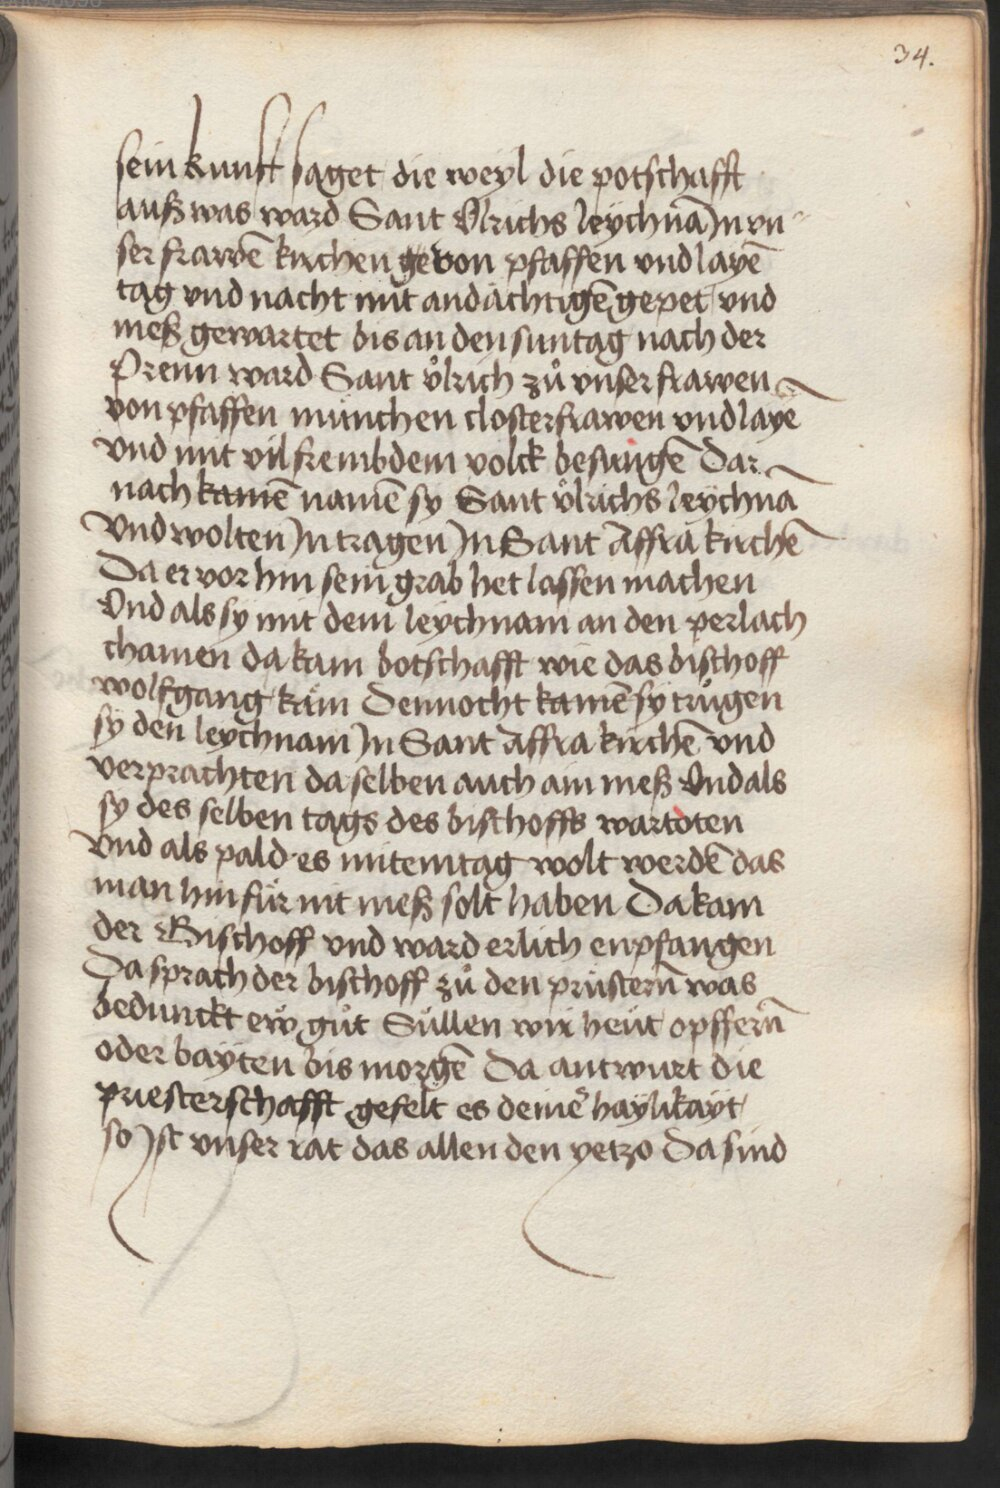 34.
sein kunft saget die weyl die potschafft
auß was ward Sant Ulrichs leychnā In vn
ser frawē kirchen gevon pfaffen vnd layē
tag vnd nacht mit andächtigē gepet vnd
meß gewartet bis an den suntag nach der
Prenn ward Sant v̊lrich zů vnser frawen
von pfaffen münchen closterfrawen vnd layē
vnd mit vil frembdem volck besungē Dar
nach kamē namē sy Sant v̊lrichs leychnā
vnd wolten In tragen In Sant Affra kirchē
Da er vor hin sein grab het lassen machen
Vnd als sy mit dem leychnam an den perlach
chamen da kam botschafft wie das bischoff
wolfgang käm Dennocht kamē sy trůgen
sy den leychnam In Sant Affra kirchē vnd
verprachten da selben auch ain meß Vnd als
sy des selben tags des bischoffs wartoten
vnd als pald es mitemtag wolt werdē das
man hin für nit meß solt haben Da kam
der Bischoff vnd ward erlich enpfangen
Da sprach der bischoff zů den pristern̄ was
bedunckt ew gůt Süllen wir heüt opffern̄
oder bayten bis morgē Da antwurt die
priesterschafft gefelt es deinē haylikayt
so Ist vnser rat das allen den yetzo Da sind